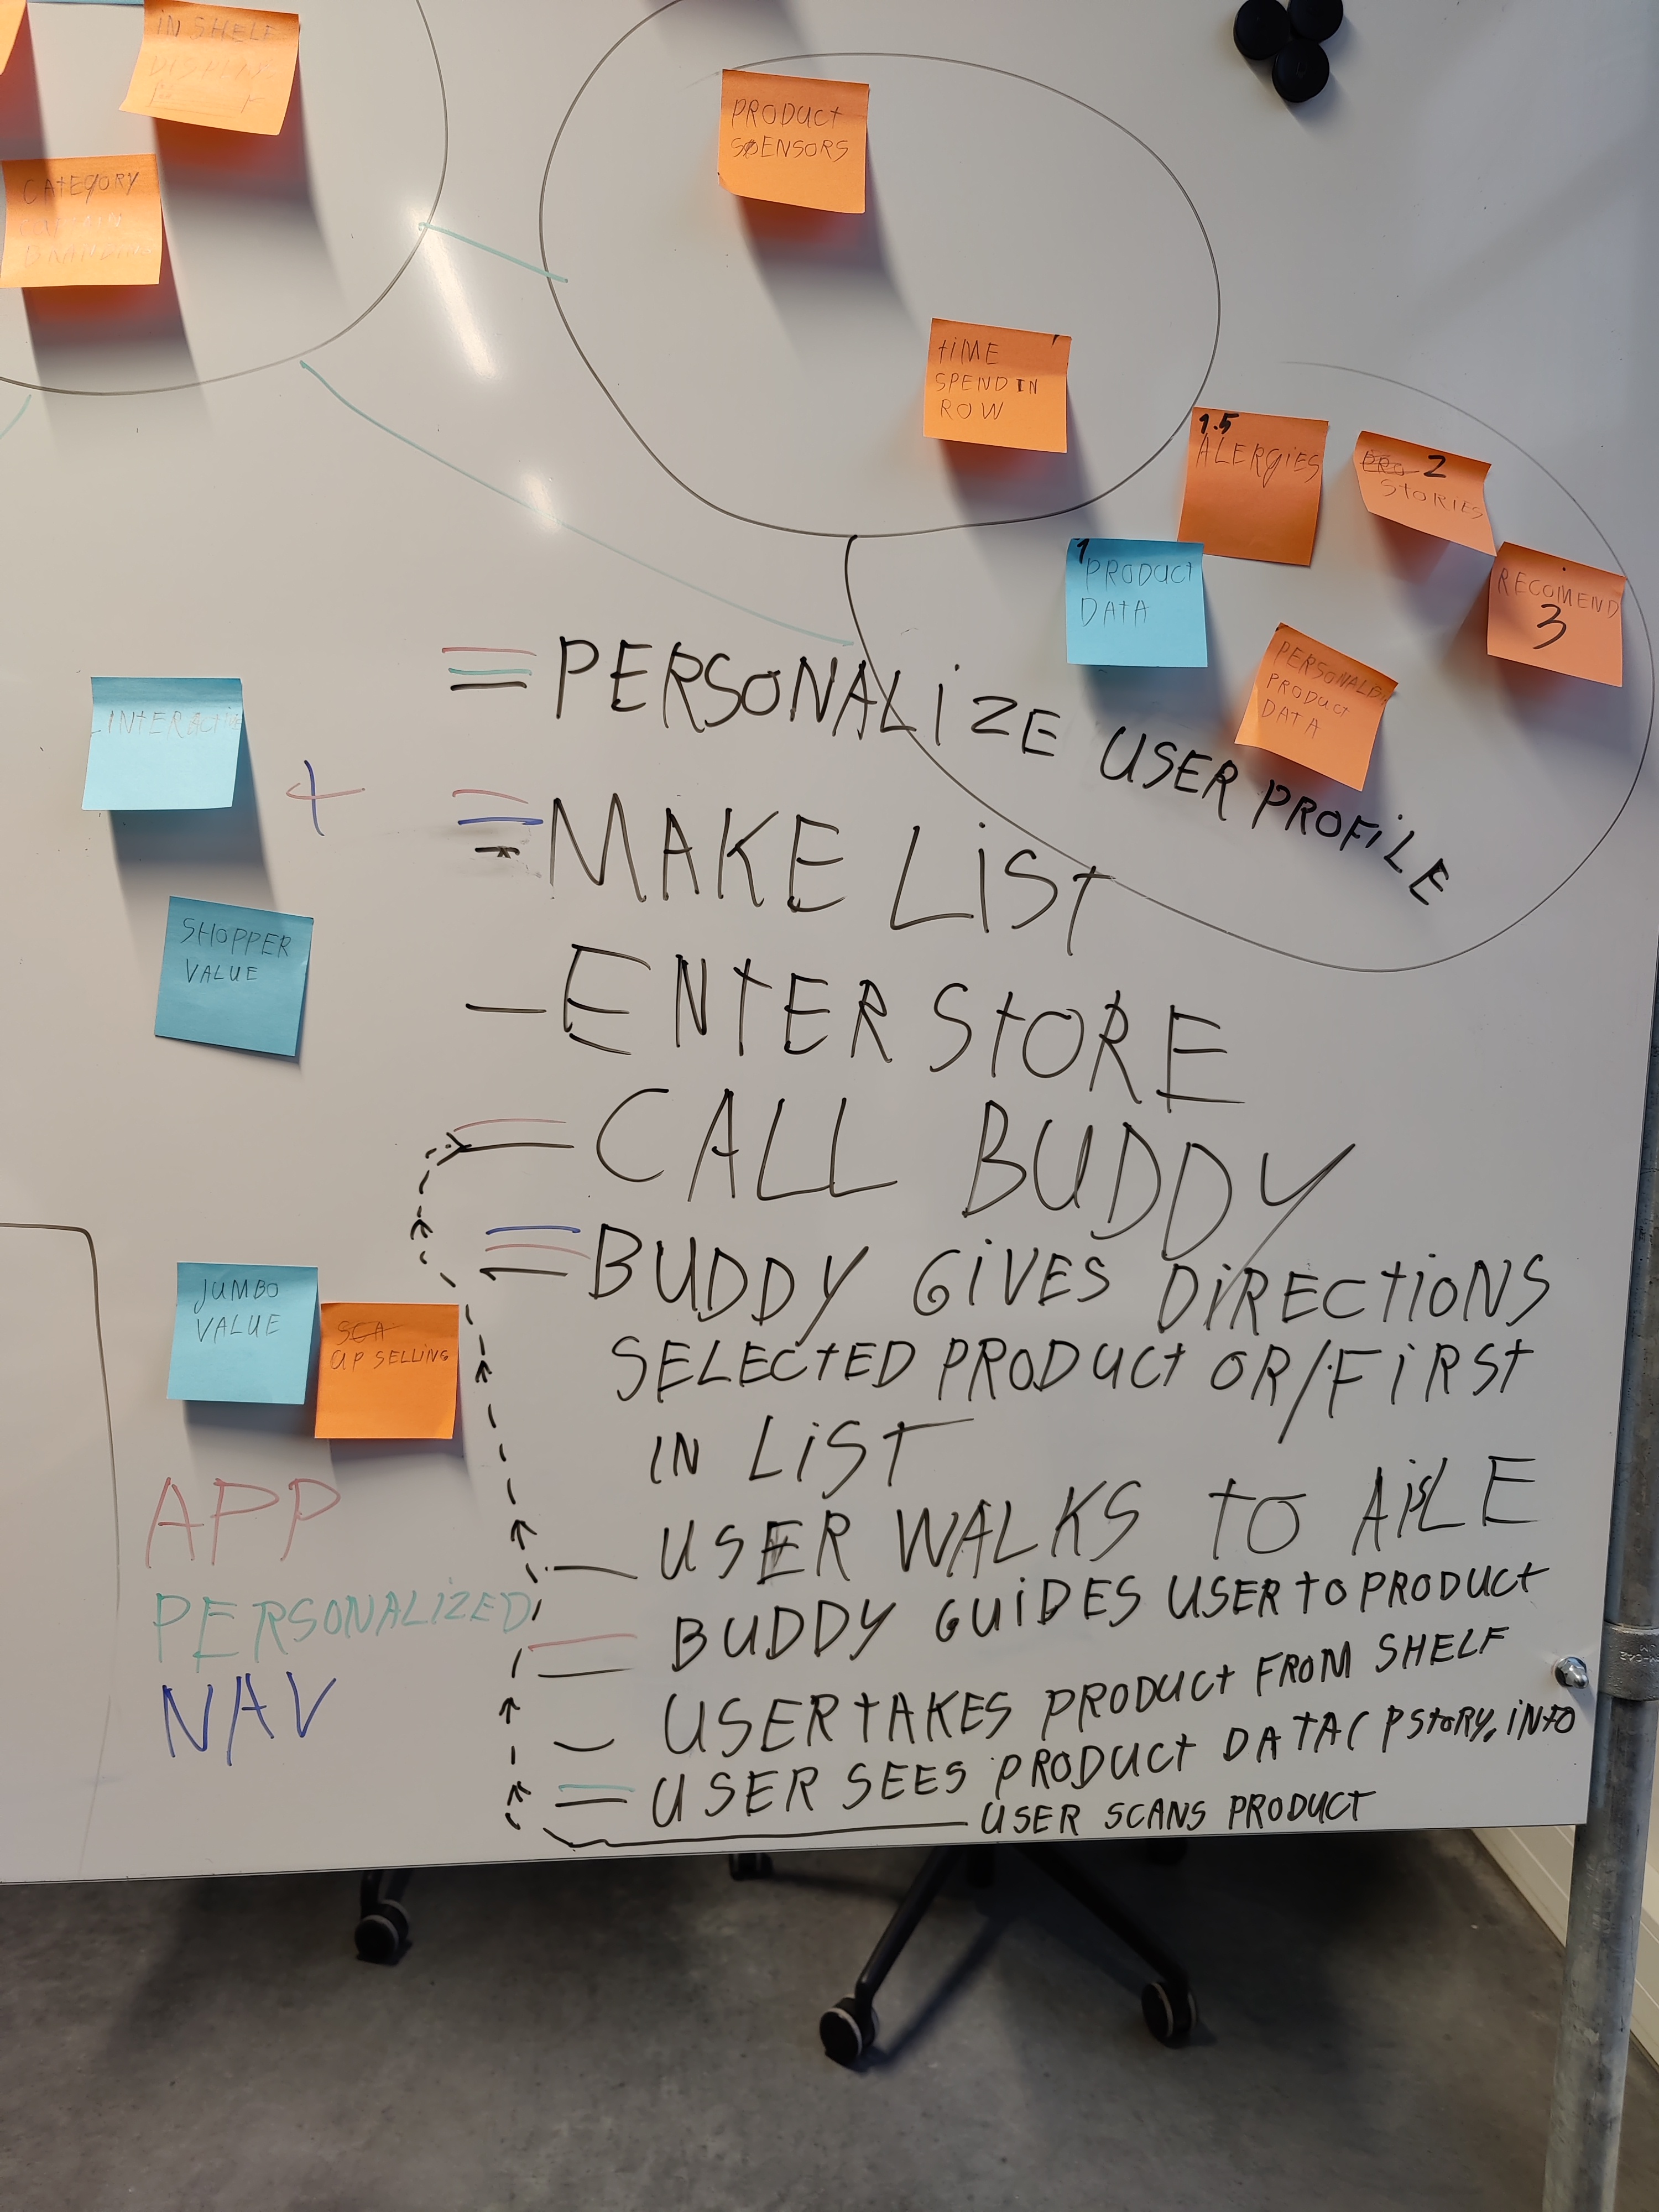 IN SHELF
CATEGORY
BRANDING
PRODUCT
SENSORS
TIME
SPEND IN
ROW
1.5
ALERGIES
PRO 2
STORIES
1
PRODUCT
DATA
RECOMEND
3
PERSONALD
PRODUCT
DATA
INTERACTIE
+
SHOPPER
VALUE
JUMBO
VALUE
SCA
UP SELLING
APP
PERSONALIZED
NAV
PERSONALIZE USER PROFILE
MAKE LIST
– ENTER STORE
CALL BUDDY
BUDDY GIVES DIRECTIONS
SELECTED PRODUCT OR/FIRST
IN LIST
USER WALKS TO AISLE
BUDDY GUIDES USER TO PRODUCT
USER TAKES PRODUCT FROM SHELF
USER SEES PRODUCT DATA( PSTORY, INFO
USER SCANS PRODUCT